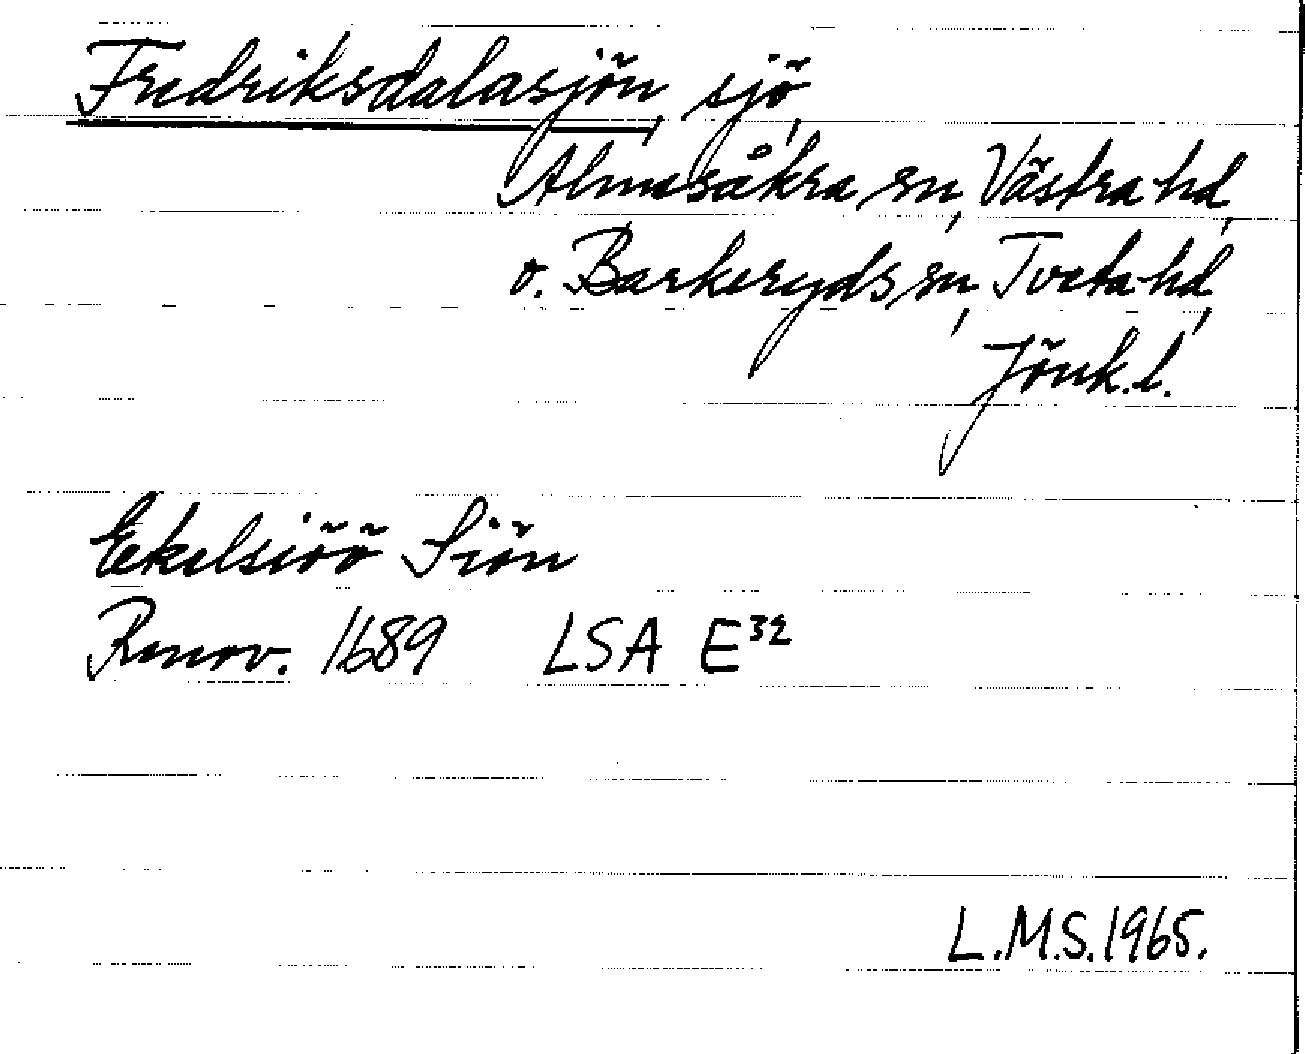 Fredriksdalasjön, sjö,
Almesåkra sn, Västra hd,
o. Barkeryds sn, Tveta hd,
Jönk. l.
Eekelsiöö Siön
Renov. 1689 LSA E³²
L.M.S. 1965.